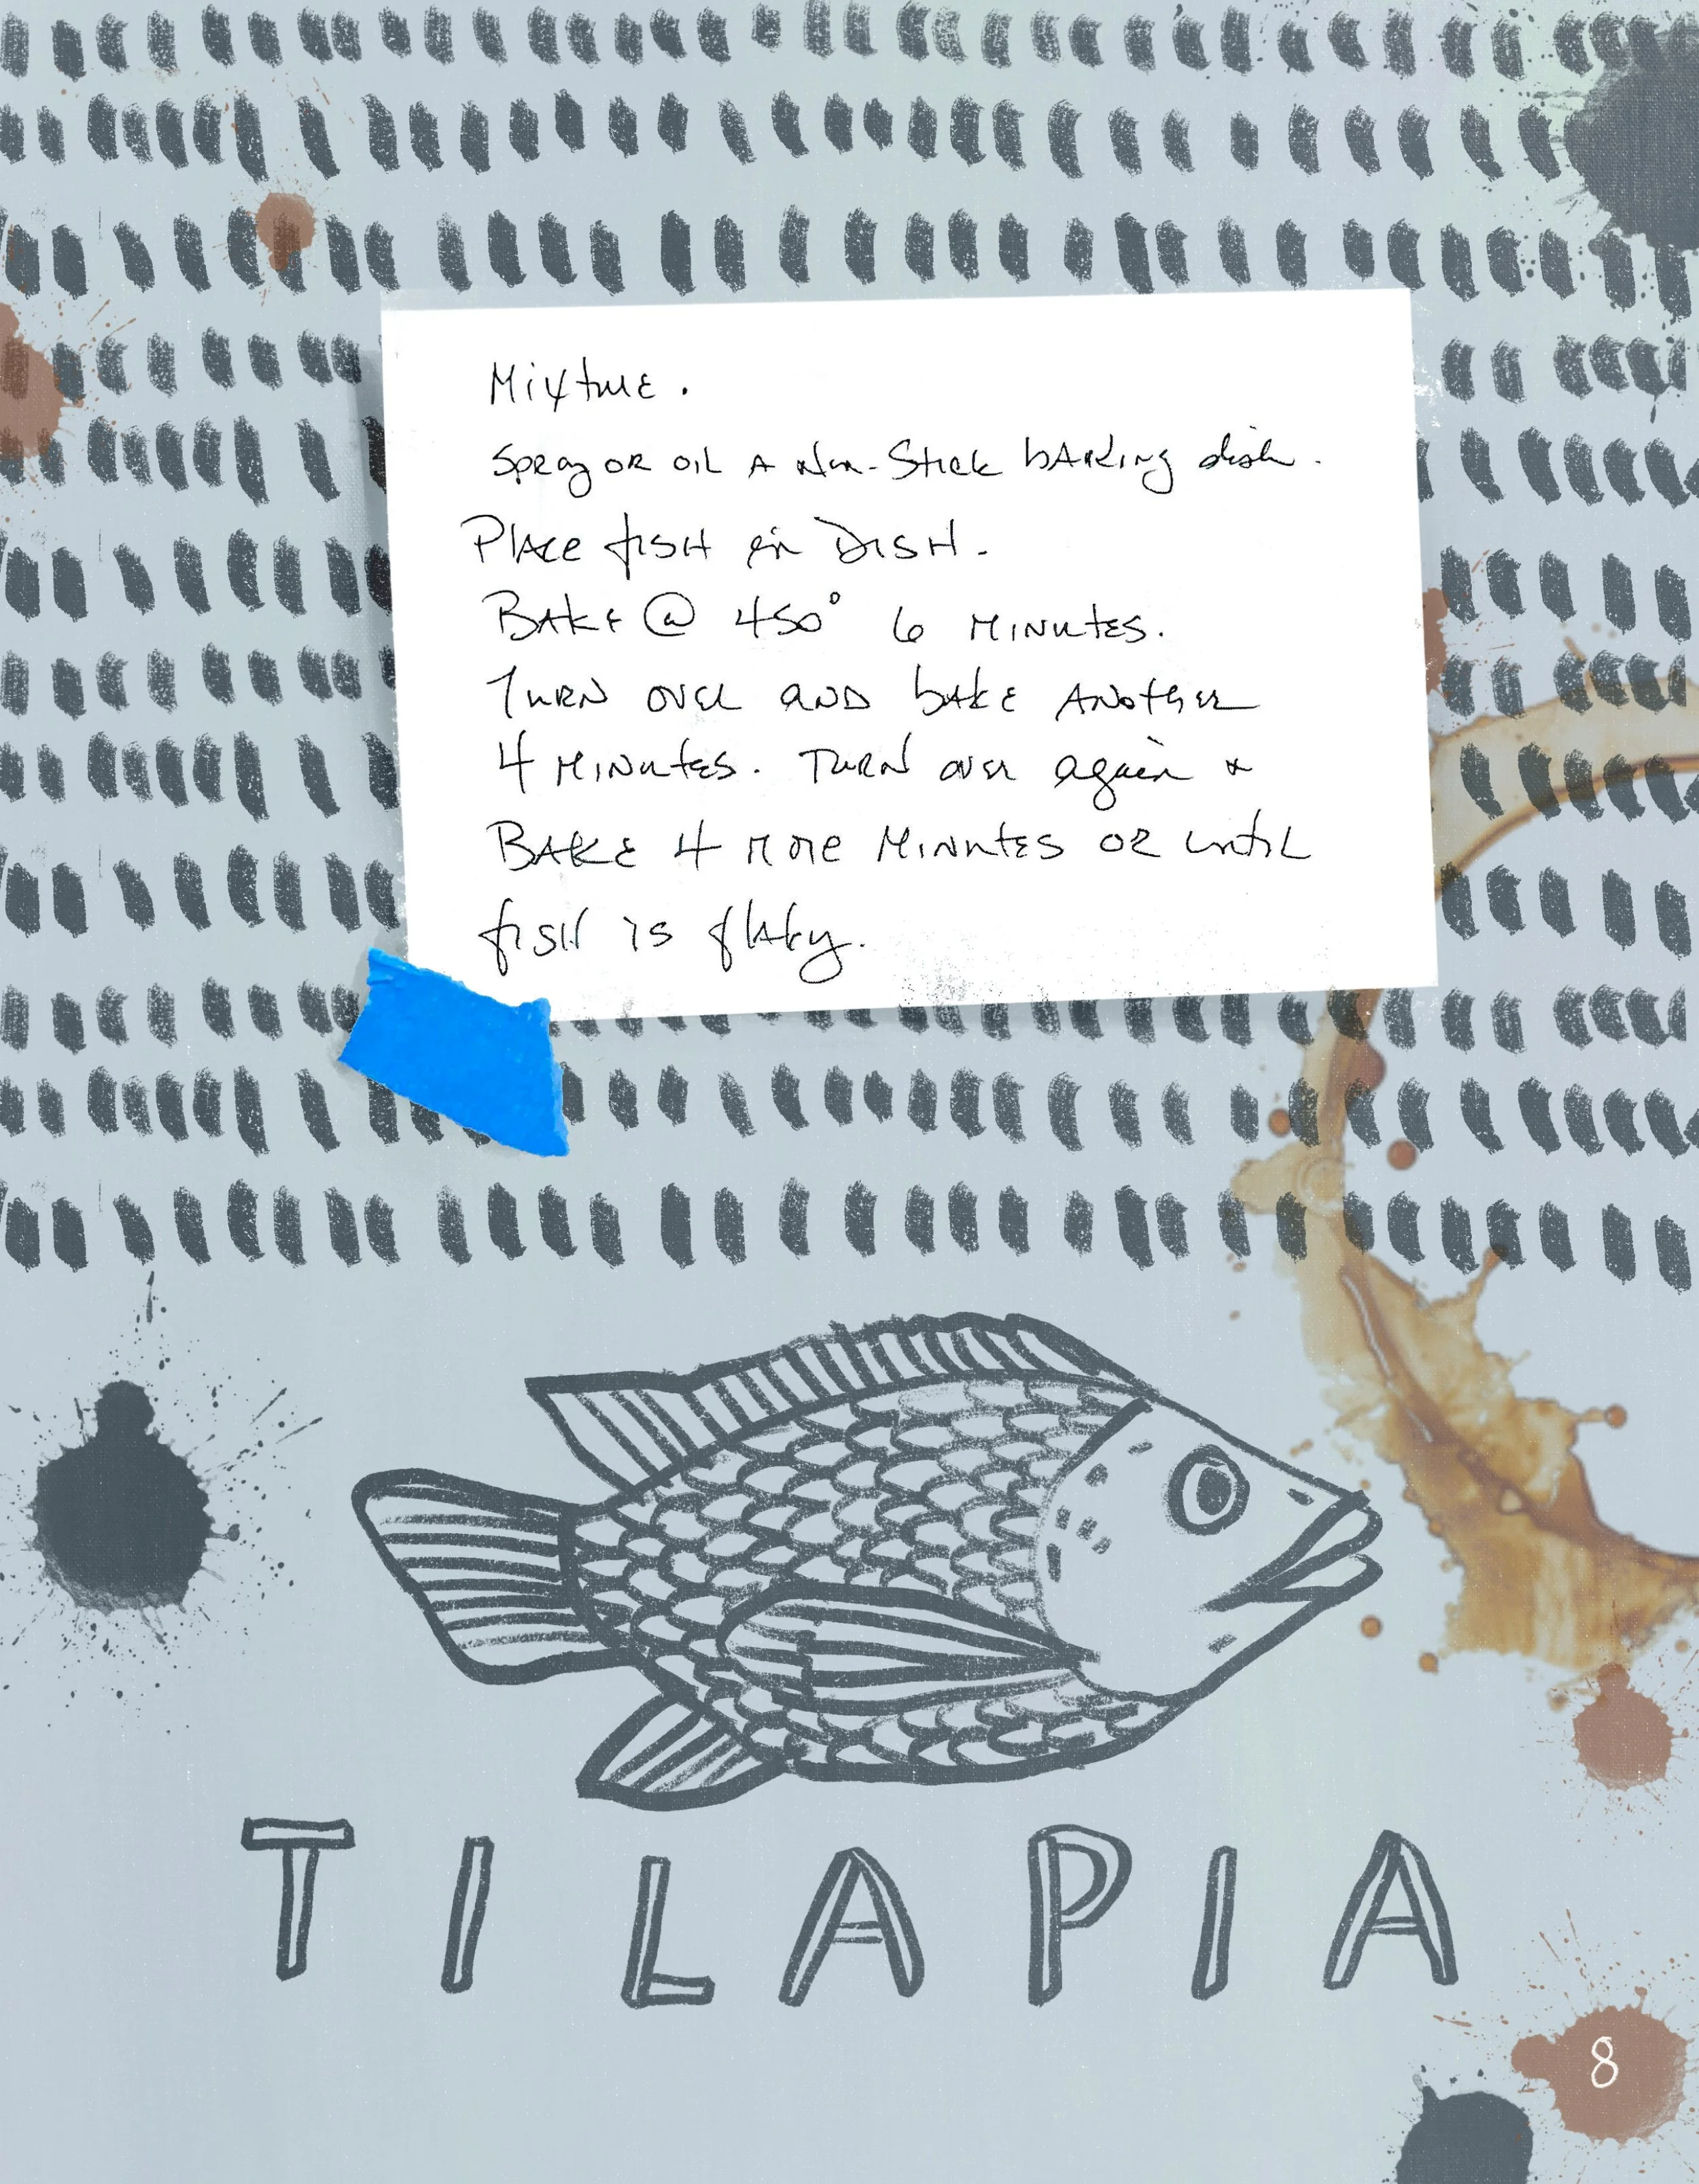 Mixture.
Spray OR OIL A Non-Stick bAking dish.
Place fisH in DISH.
BAke @ 450° 6 MINutes.
TuRN over AND bAKE ANother
4 MINutes. TuRN over again &
BAKE 4 more MINutes OR until
fisH is flaky.
TILAPIA
8